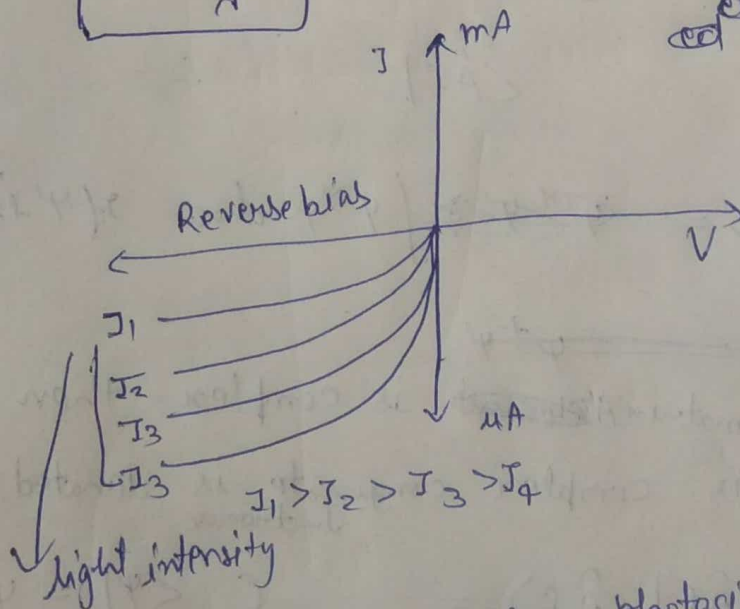 mA
I
Reverse bias
V
I1
I2
I3
I3
μA
I1 > I2 > I3 > I4
light intensity